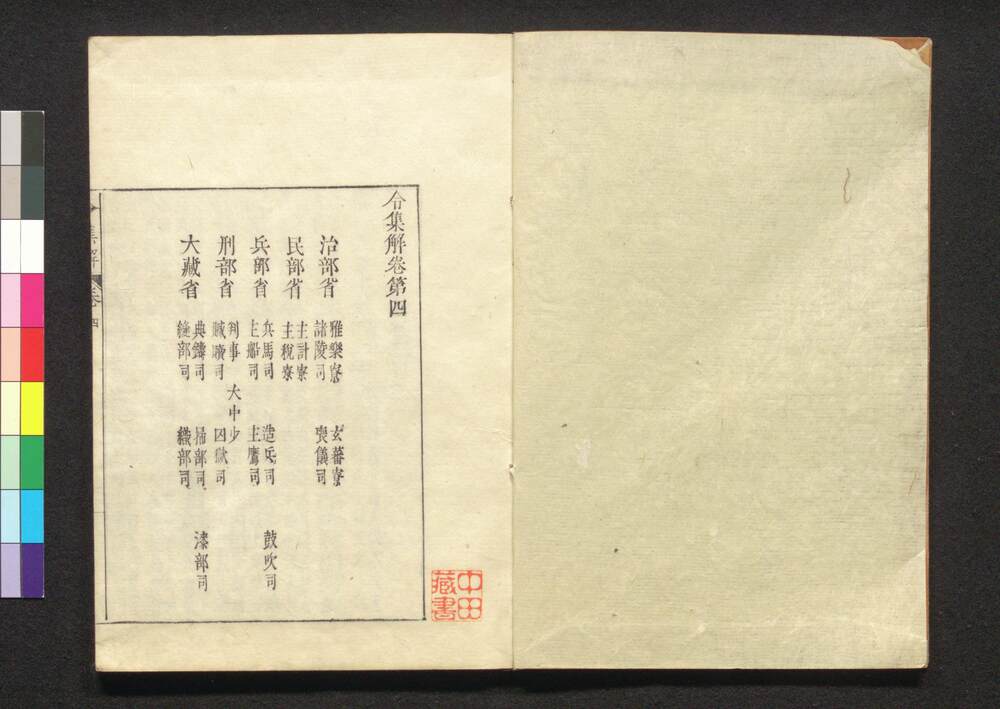 令集解卷第四
治部省
雅樂寮 玄蕃寮
諸陵司 喪儀司
民部省
主計寮
主稅寮
兵部省
兵馬司 造兵司 鼓吹司
主船司 主鷹司
刑部省
判事 大中少
贓贖司 囚獄司
大藏省
典鑄司 掃部司 漆部司
縫部司 織部司
集解 卷四
中田
藏書